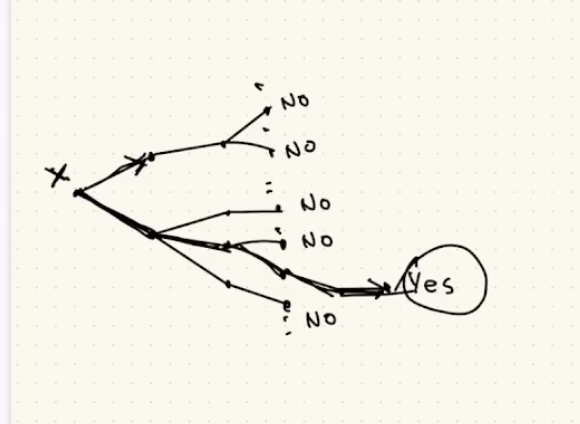 x
No
No
No
No
Yes
No